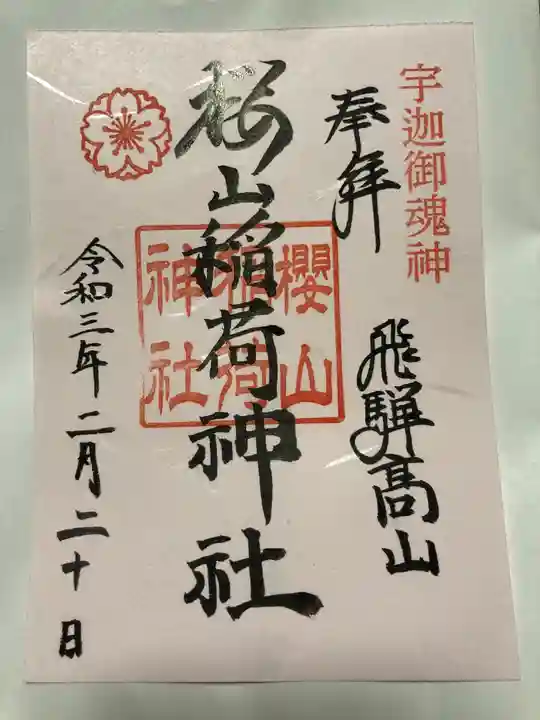 宇迦御魂神
奉拝
飛騨髙山
桜山稲荷神社
櫻山
稲荷
神社
令和三年二月二十日